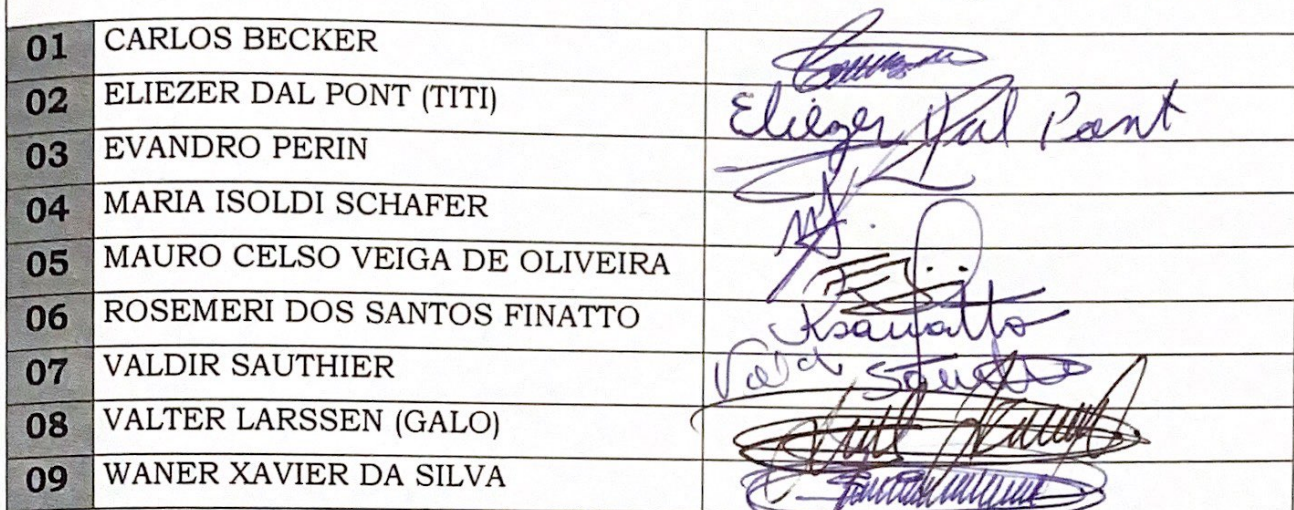 01 CARLOS BECKER
02 ELIEZER DAL PONT (TITI) Eliézer Dal Pont
03 EVANDRO PERIN
04 MARIA ISOLDI SCHAFER
05 MAURO CELSO VEIGA DE OLIVEIRA
06 ROSEMERI DOS SANTOS FINATTO
07 VALDIR SAUTHIER
08 VALTER LARSSEN (GALO)
09 WANER XAVIER DA SILVA